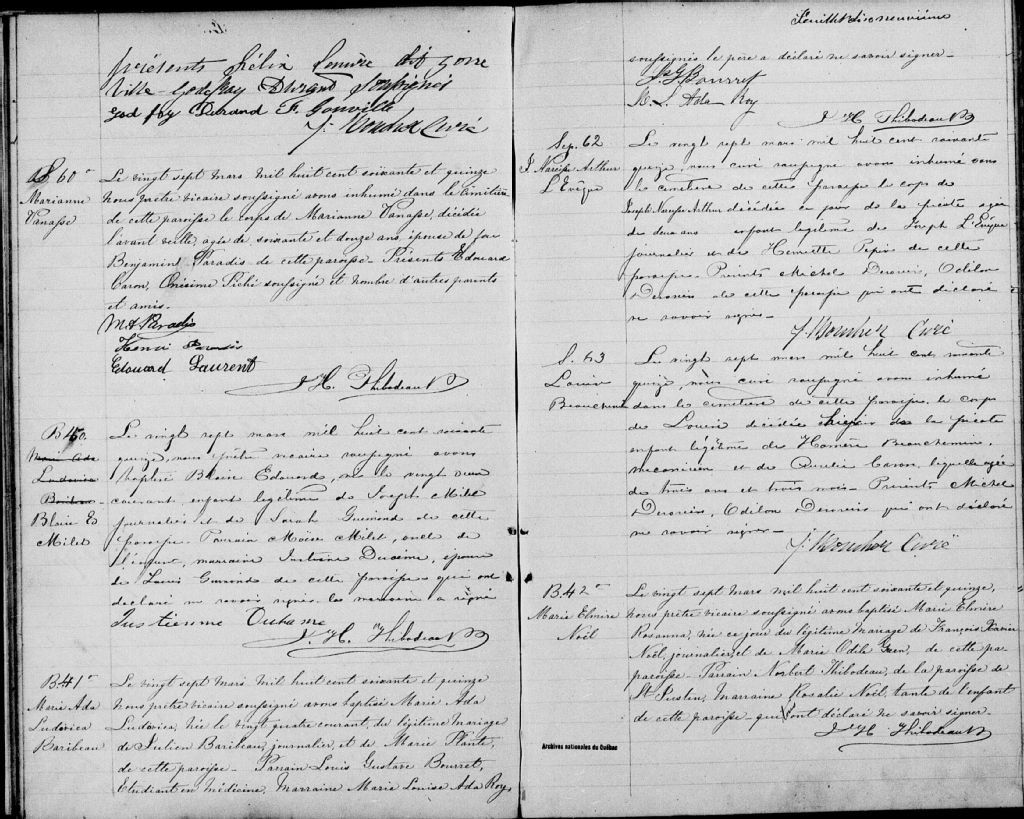 présents Félix Lemire dit Gone
Ville - Godefroy Durand soussignés
God froy Durand F. Gonville
J. Boucher Curé
S 60e
Marianne
Vanasse
Le vingt sept mars mil huit cent soixante et quinze
nous prêtre vicaire soussigné avons inhumé dans le cimetière
de cette paroisse le corps de Marianne Vanasse, décédée
l'avant veille, agée de soixante et douze ans, épouse de feu
Benjamin Paradis de cette paroisse - Présents Edouard
Caron, Onésime Piché soussigné et nombre d'autres parents
et amis.
M A Paradis
Henri Paradis
Edouard Laurent
J. H. Thibodeau
B 40.
Marie Ada
Ludovica
Baribeau
Blaise E
Milet
Le vingt sept mars mil huit cent soixante
quinze, nous prêtre vicaire soussigné avons
baptisé Blaise Edouard, né le vingt deux
courant, enfant légitime de Joseph Milet
journalier et de Sarah Guimond de cette
paroisse. Parrain Moïse Milet, oncle de
l'enfant, marraine Justienne
de Louis Guimond de cette paroisse qui ont
déclaré ne savoir signer. la marraine a signé
Justienne Duhaime
J. H. Thibodeau
B.41e
Marie Ada
Ludovica
Baribeau
Le vingt sept mars mil huit cent soixante et quinze
nous prêtre vicaire soussigné avons baptisé Marie Ada
Ludovica, née le vingt quatre courant, du légitime mariage
de Julien Baribeau, journalier, et de Marie Plante,
de cette paroisse - Parrain Louis Gustave Bourret,
Etudiant en médecine, Marraine Marie Louise Ada Roy
Feuillet dix neuvième
soussignés le père a déclaré ne savoir signer -
L. G. Bourret
M. L. Ada Roy
J H Thibodeau
Sep. 62
J. Narcisse Arthur
L'Evêque
Le vingt sept mars mil huit cent soixante
quinze, nous curé soussigné avons inhumé dans
le cimetière de cette paroisse le corps de
Joseph Narcisse Arthur décédé ce jour de la picote agé
de deux ans enfant légitime de Joseph L'Evêque
journalier et de Henriette Pepin de cette
paroisse. Présents Michel Desrosiers, Odilon
Desrosiers de cette paroisse qui ont déclaré
ne savoir signer -
J. Boucher Curé
S. 63
Louise
Beauchemin
Le vingt sept mars mil huit cent soixante
quinze, nous curé soussigné avons inhumé
dans le cimetière de cette paroisse, le corps
de Louise décédée hier de la picote
enfant légitime de Honoré Beauchemin,
mécanicien et de Aurélie Caron, laquelle agée
de trois ans et trois mois - Présents Michel
Desrosiers, Odilon Desrosiers qui ont déclaré
ne savoir signer -
J. Boucher Curé
B.42e
Marie Elmire
Noël
Le vingt sept mars mil huit cent soixante et quinze,
nous prêtre vicaire soussigné avons baptisé Marie Elmire
Rosanna, née ce jour du légitime mariage de François Xavier
Noël, journalier, et de Marie Odile de cette pa-
paroisse - Parrain Norbert Thibodeau, de la paroisse de
St Justin, Marraine Rosalie Noël, tante de l'enfant
de cette paroisse - qui ont déclaré ne savoir signer -
J H Thibodeau
Archives nationales du Québec